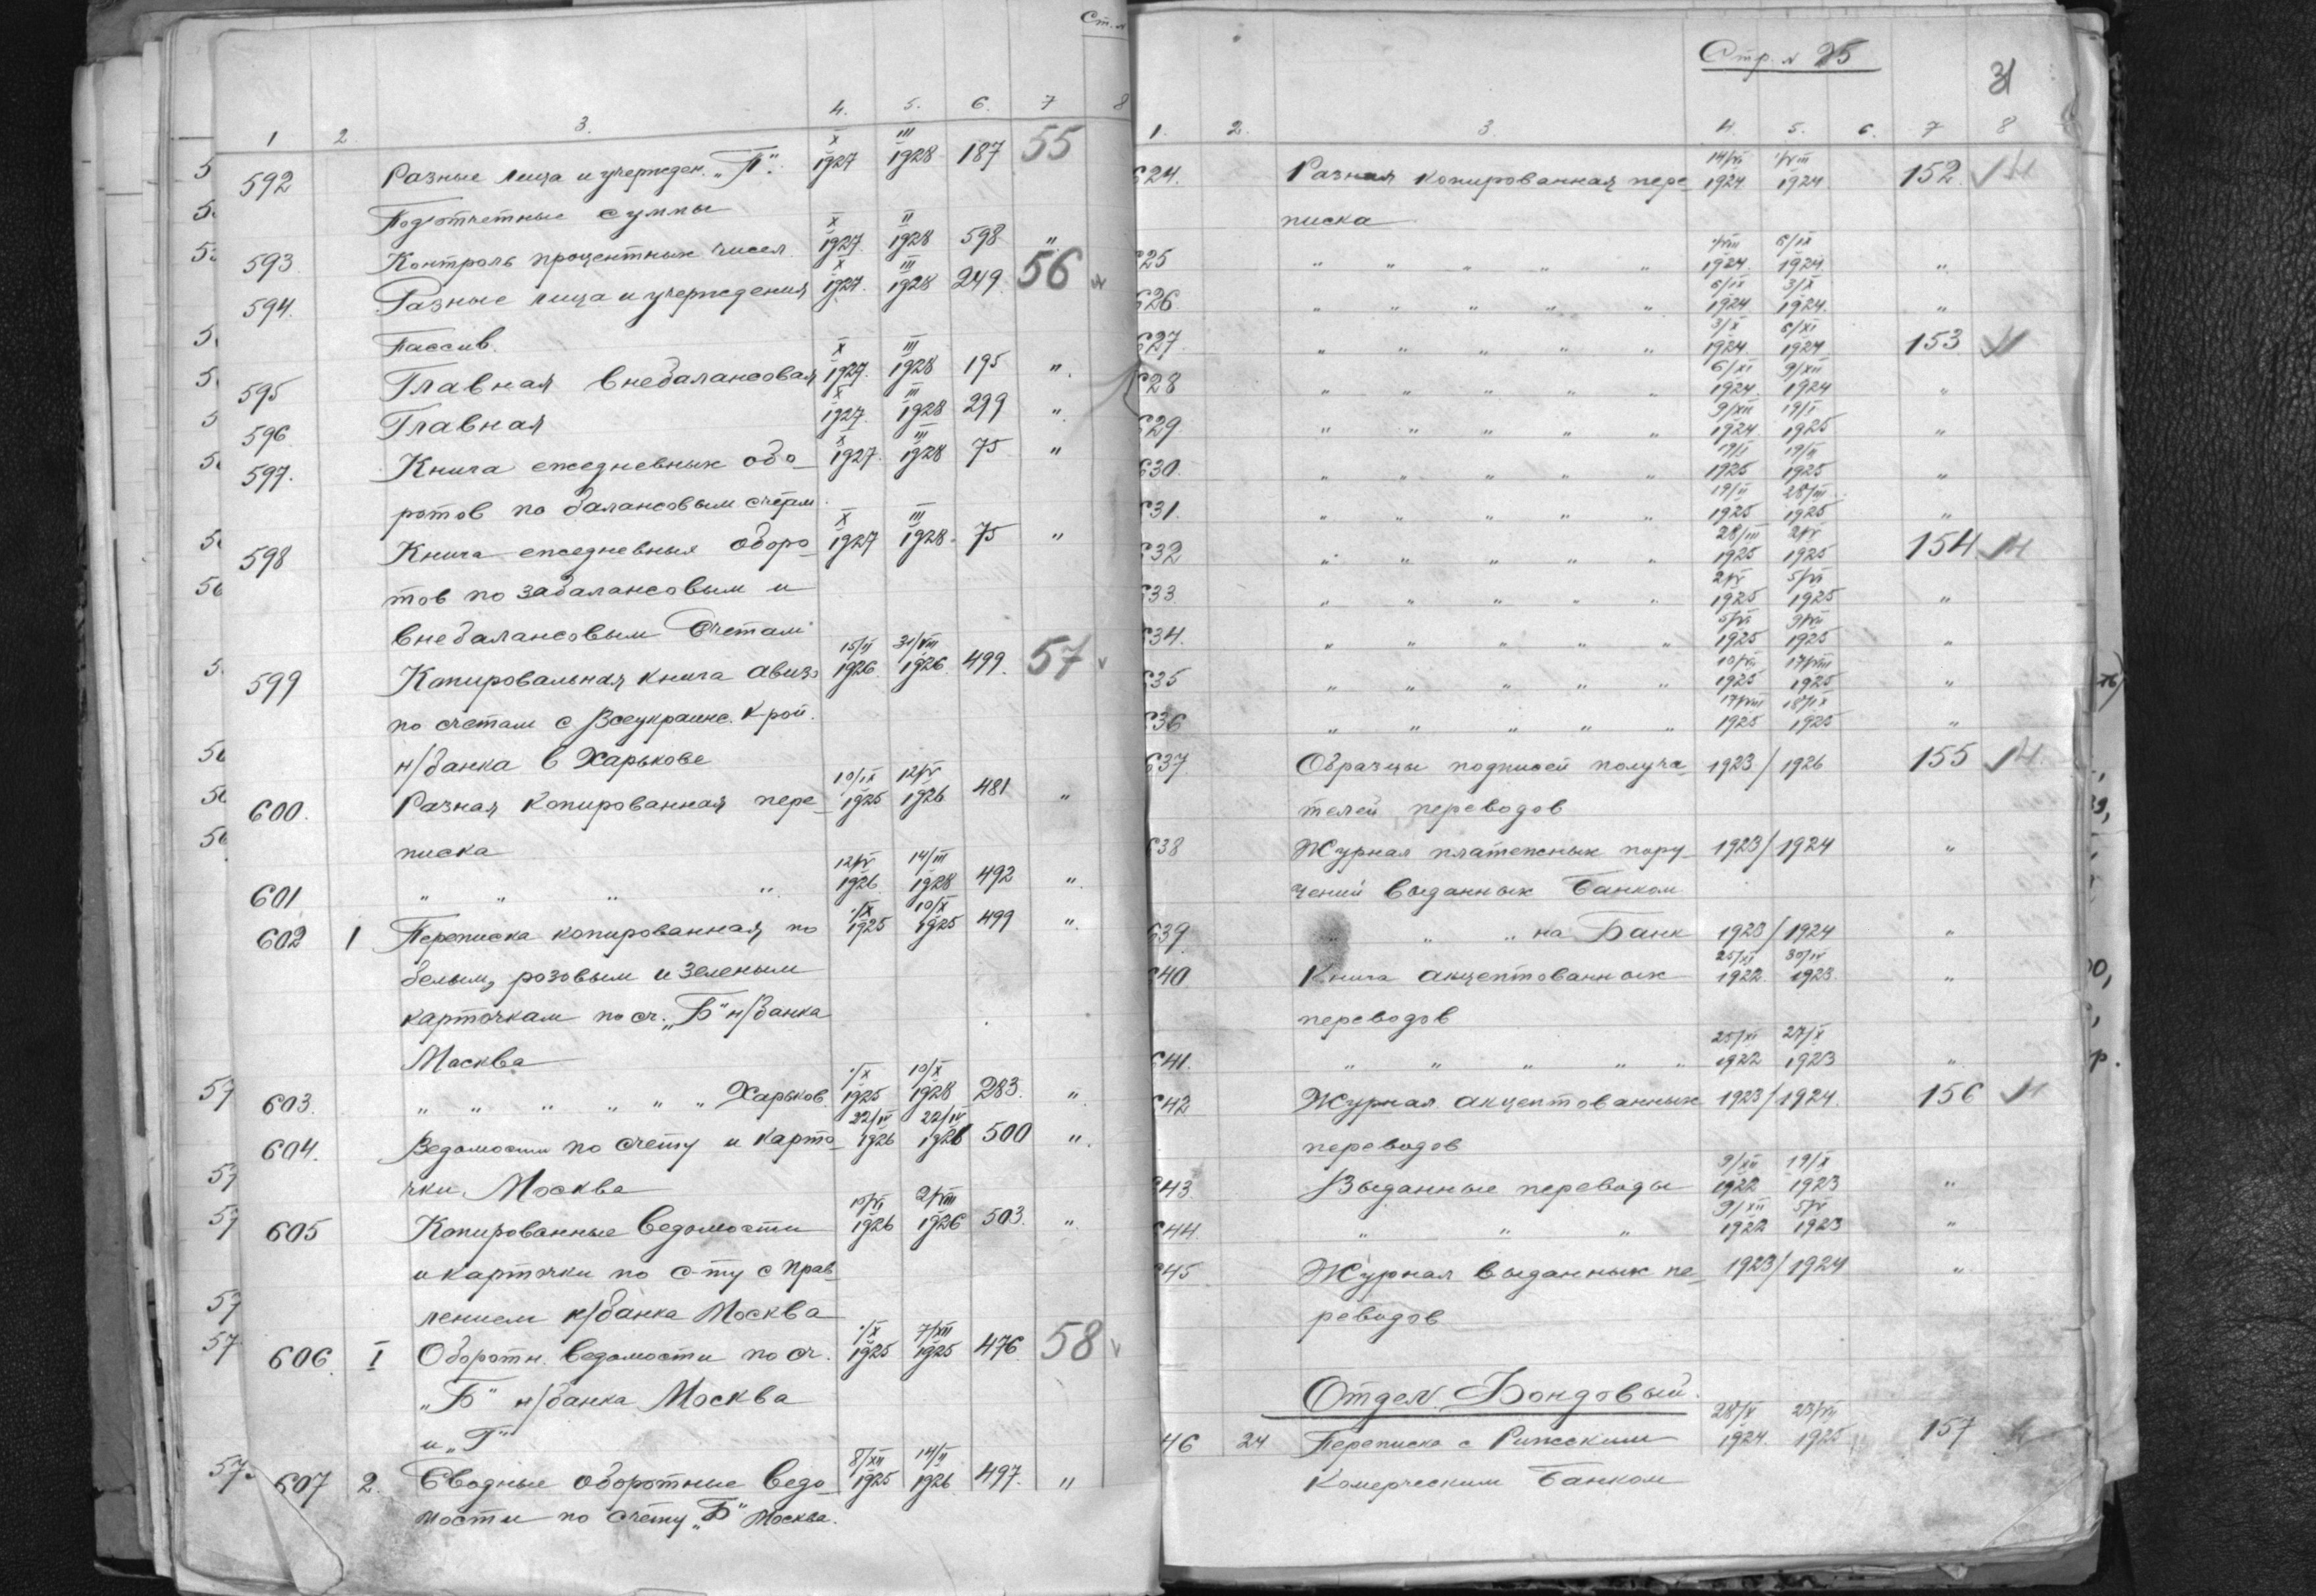 Ст. №
1 2 3. 4. 5. 6. 7 8
592 Разные лица и учрежден. „П". X 1927 III 1928 187 55
Подотчетные суммы
593 Контроль процентных чисел X 1927. II 1928 598 "
594. Разные лица и учреждения X 1927. III 1928 249 56
Пассив.
595 Главная внебалансовая X 1927. III 1928 195 "
596 Главная X 1927. III 1928 299 "
597. Книга ежедневных обо- X 1927. III 1928 75 "
ротов по балансовым счетам.
598 Книга ежедневных оборо- X 1927 III 1928. 75 "
тов по забалансовым и
внебалансовым счетам
599 Копировальная книга авизо 15/II 1926. 31/VIII 1926. 499. 57
по счетам с Всеукраинс. К-рой.
н/банка в Харькове
600. Разная копированная пере- 10/IX 1925 12/IV 1926 481 "
писка
601 " " " " 12/IV 1926. 14/III 1928 492 "
602 1 Переписка копированная по 1/X 1925 10/X 1925 499 "
белым, розовым и зеленым
карточкам по сч. „Б" н/банка
Москва
603. " " " " " " Харьков 1/X 1925 10/X 1928 283. "
604. Ведомости по счету и карто- 22/IV 1926 22/IV 1926 500 "
чки Москва
605 Копированные ведомости 10/VI 1926 2/VIII 1926 503. "
и карточки по с-ту с Прав-
лением н/банка Москва
606. I Оборотн. ведомости по сч. 1/X 1925 7/XII 1925 476. 58
„Б" н/банка Москва
и „Г"
607 2. Сводные оборотные ведо- 8/XII 1925 14/II 1926 497. "
мости по счету „Б" Москва.
Стр. № 25
31
1. 2. 3. 4. 5. 6. 7 8
624. Разная копированная пере- 14/VI 1924 1/VIII 1924 152.
писка
625 " " " " " 1/VIII 1924. 6/IX 1924. "
626 " " " " " 6/IX 1924 3/X 1924. "
627. " " " " " 3/X 1924. 6/XI 1924 153
628 " " " " " 6/XI 1924. 9/XII 1924 "
629 " " " " " 9/XII 1924 19/I 1925 "
630. " " " " " 19/I 1925 19/II 1925 "
631. " " " " " 19/II 1925 28/III 1925 "
632 " " " " " 28/III 1925 2/V 1925 154
633 " " " " " 2/V 1925 5/VI 1925 "
634. " " " " " 5/VI 1925 9/VII 1925 "
635 " " " " " 10/VII 1925 17/VIII 1925 "
636 " " " " " 17/VIII 1925 18/IX 1925 "
637 Образцы подписей получа- 1923/1926 155
телей переводов
638 Журнал платежных пору- 1923/1924 "
чений выданных Банком
639 " " " на Банк 1923/1924 "
640. Книга акцептованных 25/XI 1922. 30/IV 1923. "
переводов
641. " " " " " 25/XI 1922 27/X 1923 "
642 Журнал акцептованных 1923/1924. 156
переводов
643. Выданные переводы 9/XII 1922 19/X 1923 "
644. " " " 9/XII 1922 5/V 1923 "
645 Журнал выданных пе- 1923/1924 "
реводов
Отдел Фондовый.
46 24 Переписка с Рижским 28/V 1924. 23/VII 1925 157
Комерческим Банком